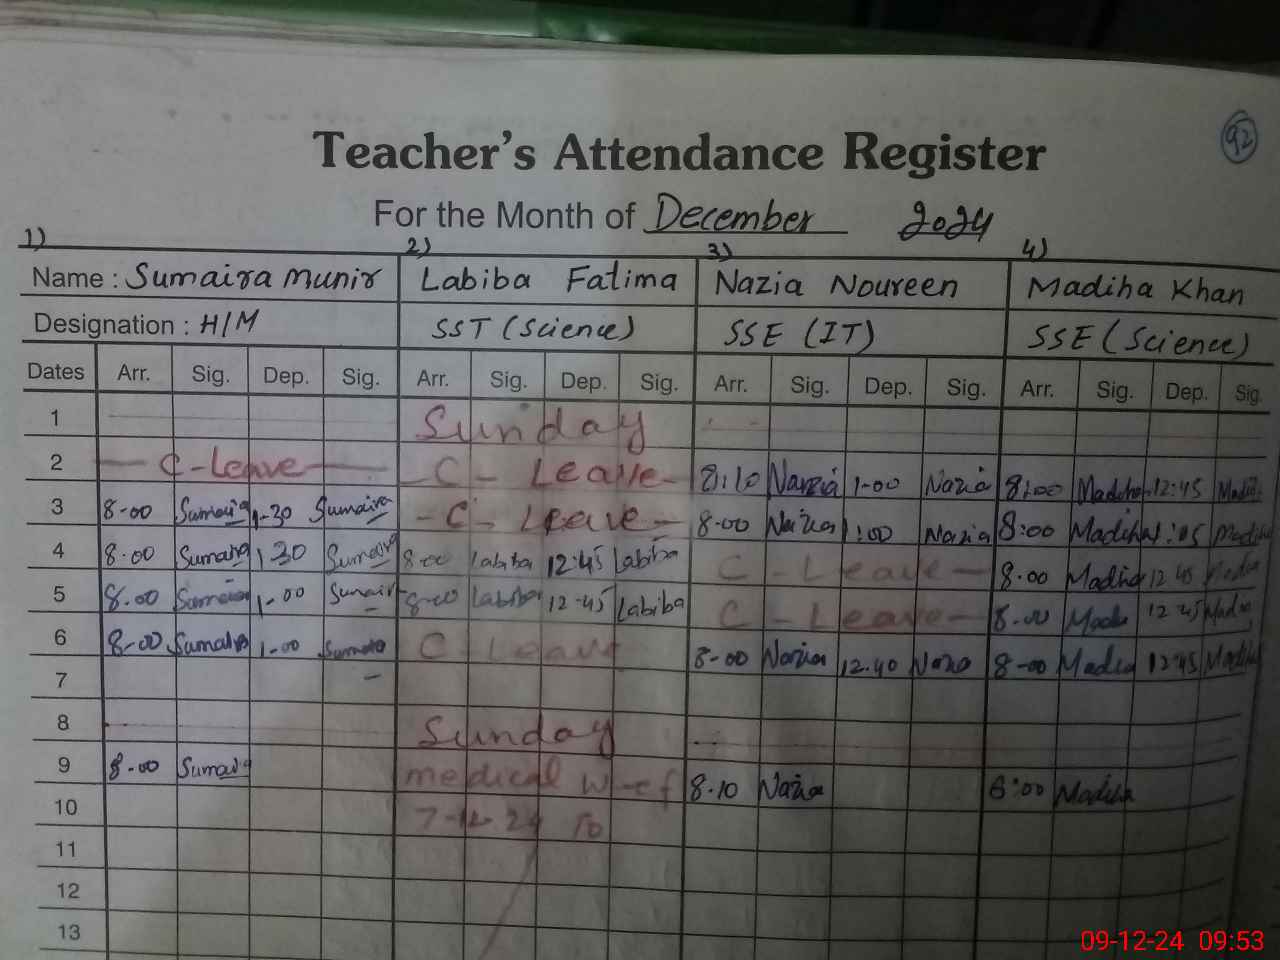 92
Teacher's Attendance Register
For the Month of December 2024
1) 2) 3) 4)
Name : Sumaira munir Labiba Fatima Nazia Noureen Madiha Khan
Designation : H/M SST (Science) SSE (IT) SSE (Science)
Dates Arr. Sig. Dep. Sig. Arr. Sig. Dep. Sig. Arr. Sig. Dep. Sig. Arr. Sig. Dep. Sig.
1 Sunday
2 C-Leave C-Leave 8:10 Nazia 1-00 Nazia 8:00 Madiha 12:45 Madiha
3 8-00 Sumaira 1-30 Sumaira -C-Leave- 8-00 Nazia 1:00 Nazia 8:00 Madiha 1:05 Madiha
4 8.00 Sumaira 1,30 Sumaira 8-00 Labiba 12:45 Labiba C-Leave- 8.00 Madiha 12 45
5 8.00 Sumaira 1-00 Sumaira 8-00 Labiba 12-45 Labiba C-Leave- 8.00 12 45
6 8-00 Sumaira 1-00 Sumaira C-Leave 8-00 Nazia 12.40 Nazia 8-00 Madiha 12:45 Madiha
7
8 Sunday
9 8-00 Sumaira medical w-ef 8.10 Nazia 8:00 Madiha
10 7-12-24 To
11
12
13
09-12-24 09:53